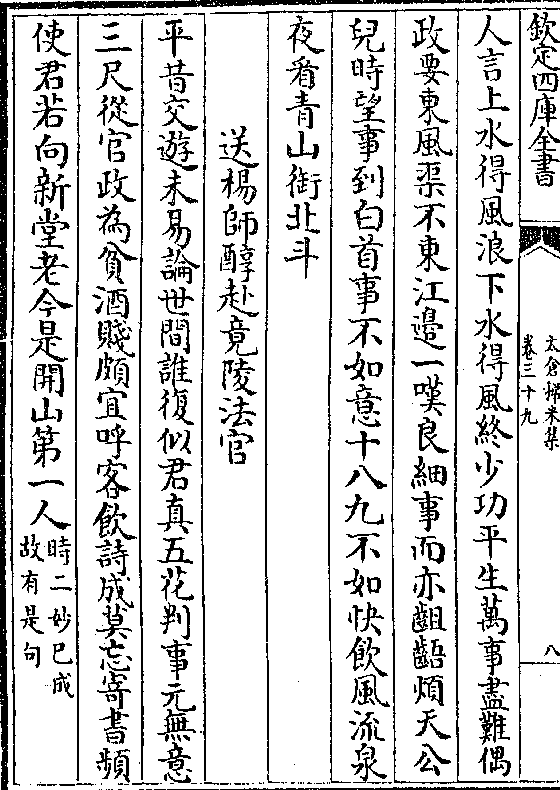 欽定四庫全書
太倉稊米集
卷三十九
八
人言上水得風浪下水得風終少功平生萬事盡難偶
政要東風渠不東江邉一嘆良細事而亦齟齬煩天公
兒時望事到白首事不如意十八九不如快飲風流泉
夜看青山銜北斗
送楊師醇赴竟陵法官
平昔交遊未易論世間誰復似君真五花判事元無意
三尺從官政為貧酒賤頗宜呼客飲詩成莫忘寄書頻
使君若向新堂老今是開山第一人時二妙已成
故有是句